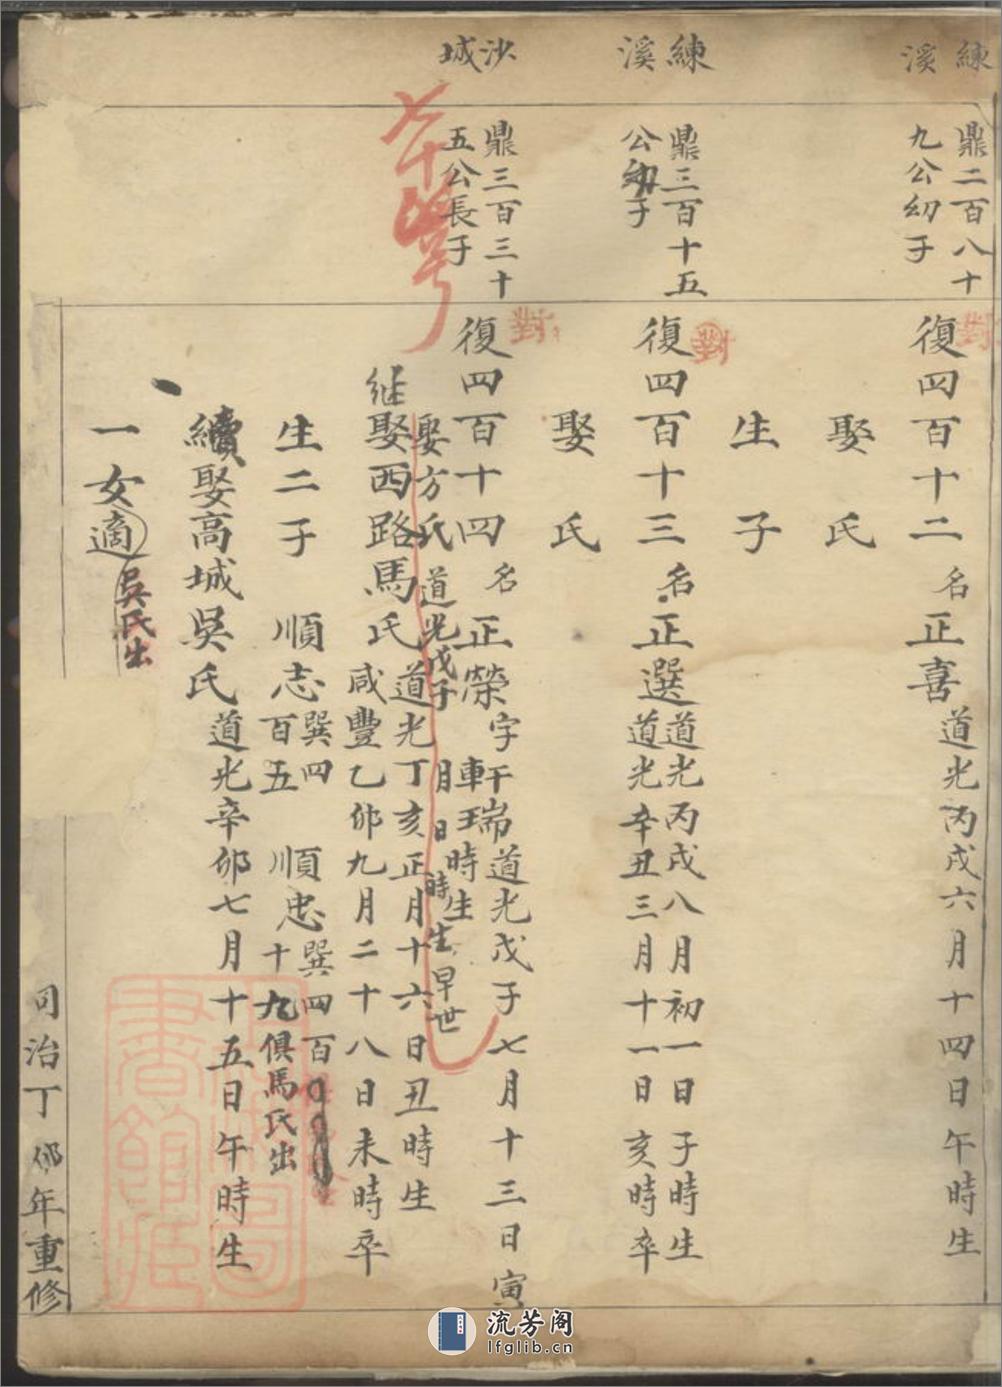 練溪
鼎二百八十九公幼子
對
復四百十二
名正喜
道光丙戌六月十四日午時生
娶氏
生子
練溪
鼎三百十五公幼子
對
復四百十三
名正選
道光丙戌八月初一日子時生
道光辛丑三月十一日亥時卒
娶氏
沙城
鼎三百三十五公長子
對
復四百十四
名正榮
字玕瑞
軒玉
道光戊子七月十三日寅時生
娶方氏
道光戊子 月 日 時生早世
継娶西路馬氏
道光丁亥正月十六日丑時生
咸豐乙卯九月二十八日未時卒
生二子
順志
巽四百五
順忠
巽四百
十九
俱馬氏出
續娶高城吳氏
道光辛卯七月十五日午時生
一女適
吳氏出
同治丁卯年重修
書館
流芳阁
lfglib.cn